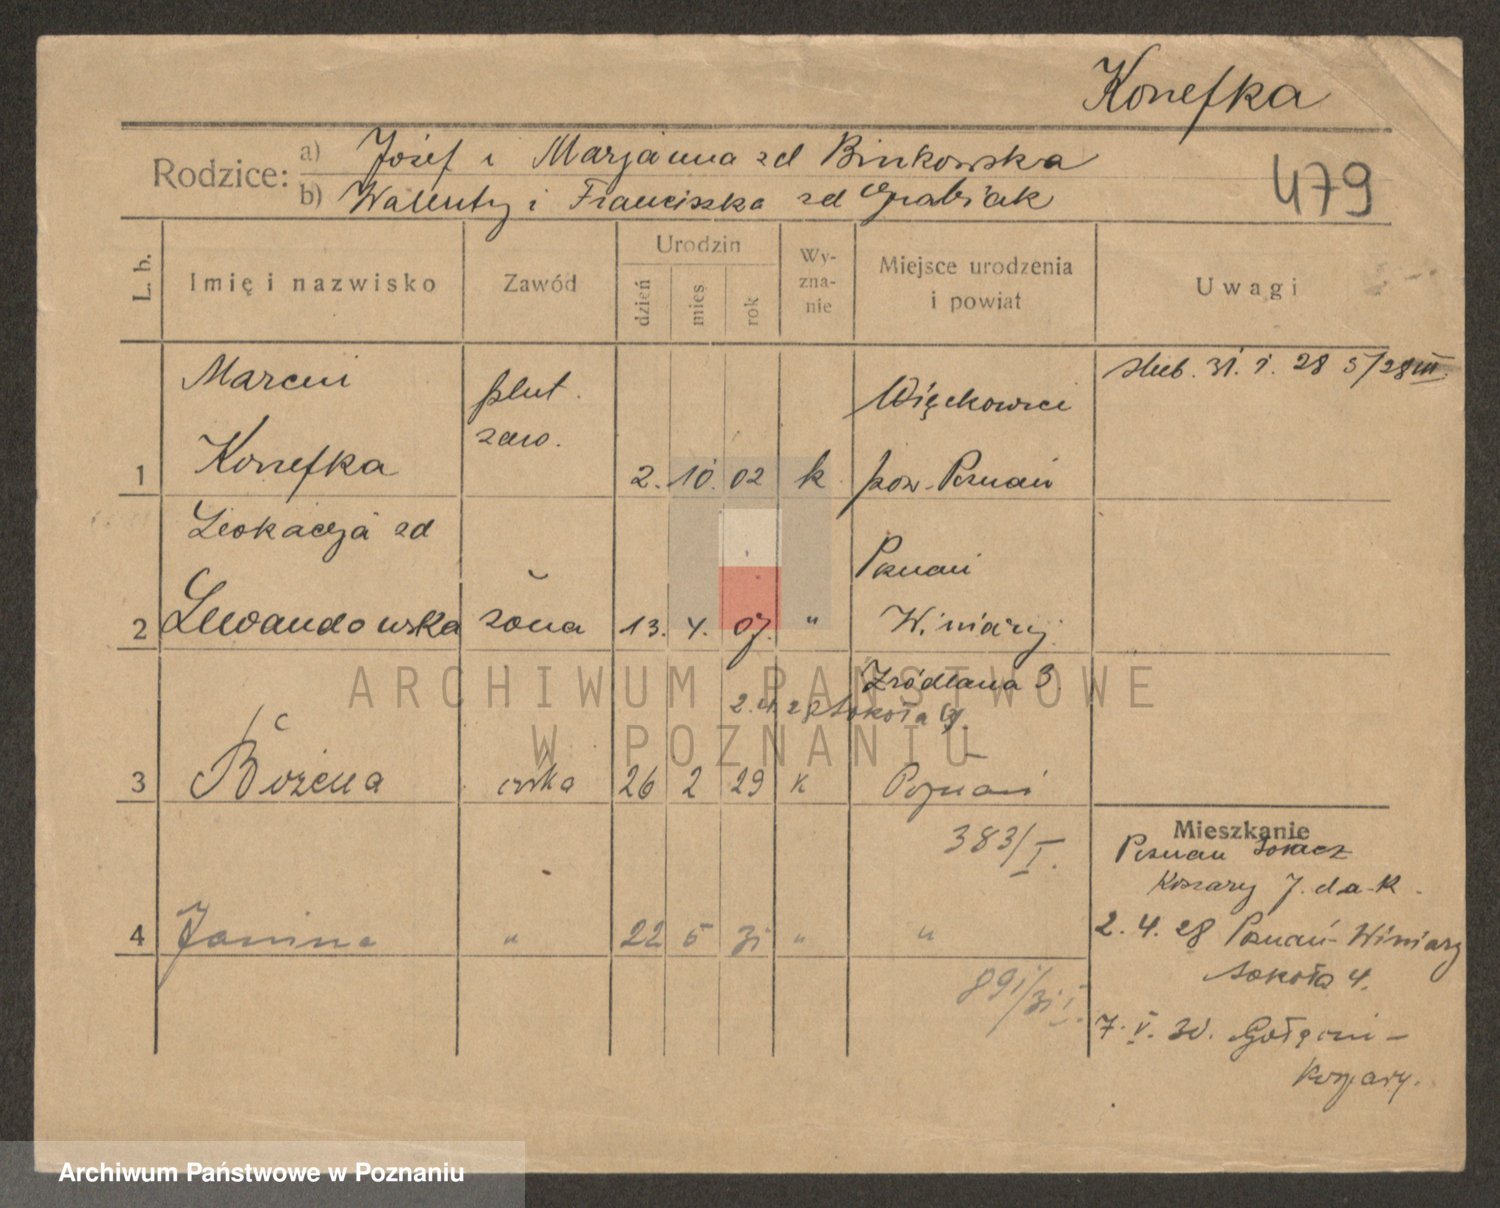 Konefka
Rodzice: a) Józef i Marjanna zd Binkowska
b) Walenty i Franciszka zd Grabiak
479
L. b.
Imię i nazwisko
Zawód
Urodzin
dzień
mies
rok
Wy-
zna-
nie
Miejsce urodzenia
i powiat
Uwagi
Marcin
plut.
Więckowice
ślub. 31. 1. 28 5/28 III
Konefka
zaw.
1
2. 10. 02
k
pow. Poznań
Leokadja zd
Poznań
2
Lewandowska
żona
13. 4. 07.
"
Winiary
Źródlana 3
Sokoła
3
Bożena
córka
26 2 29
k
Poznań
383/I.
4
Janina
"
22 5 31
"
"
891/31 I.
Mieszkanie
Poznań Sołacz
Koszary 7. d a-k.
2. 4. 28 Poznań-Winiary
Sokoła 4.
7. V. 30. Gołęcin-
Koszary.
ARCHIWUM PAŃSTWOWE
W POZNANIU
Archiwum Państwowe w Poznaniu